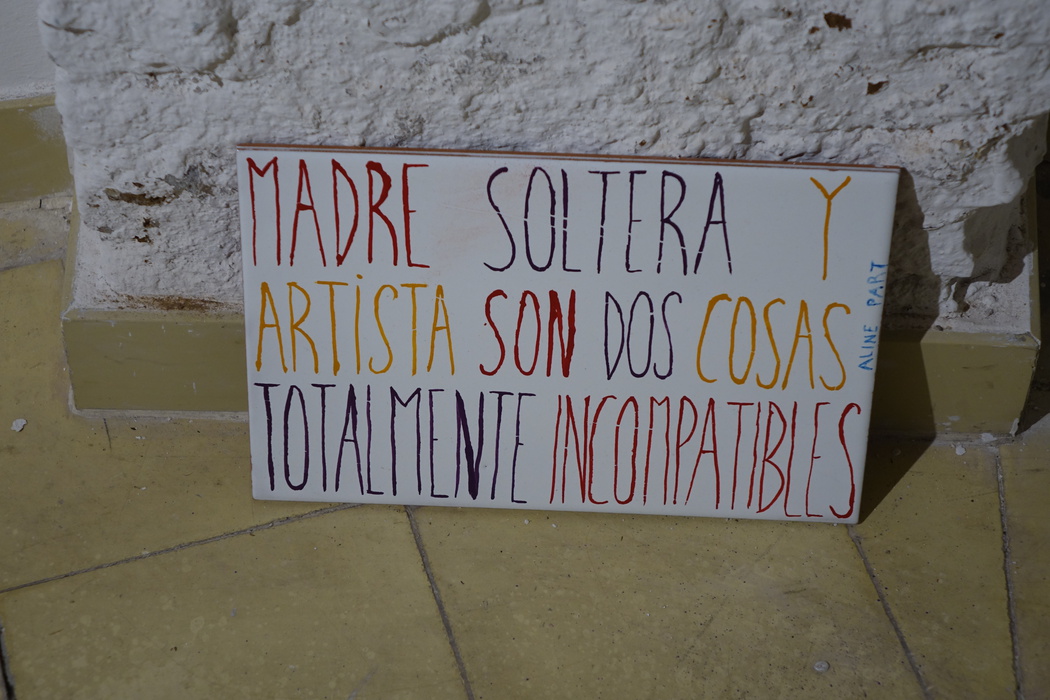 MADRE SOLTERA Y
ARTiSTA SON DOS COSAS
TOTALMENTE INCOMPATIBLES
ALINE PART